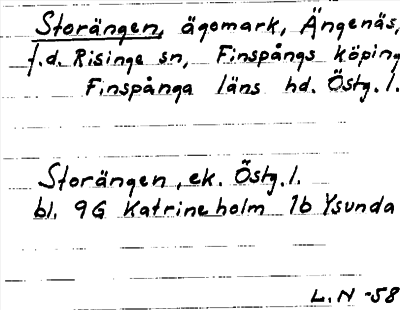 Storängen, ägomark, Ängenäs,
f.d. Risinge sn, Finspångs köping
Finspånga läns hd. Östg.l.
Storängen, ek. Östg.l.
bl. 9G Katrineholm 1b Ysunda
L.N -58